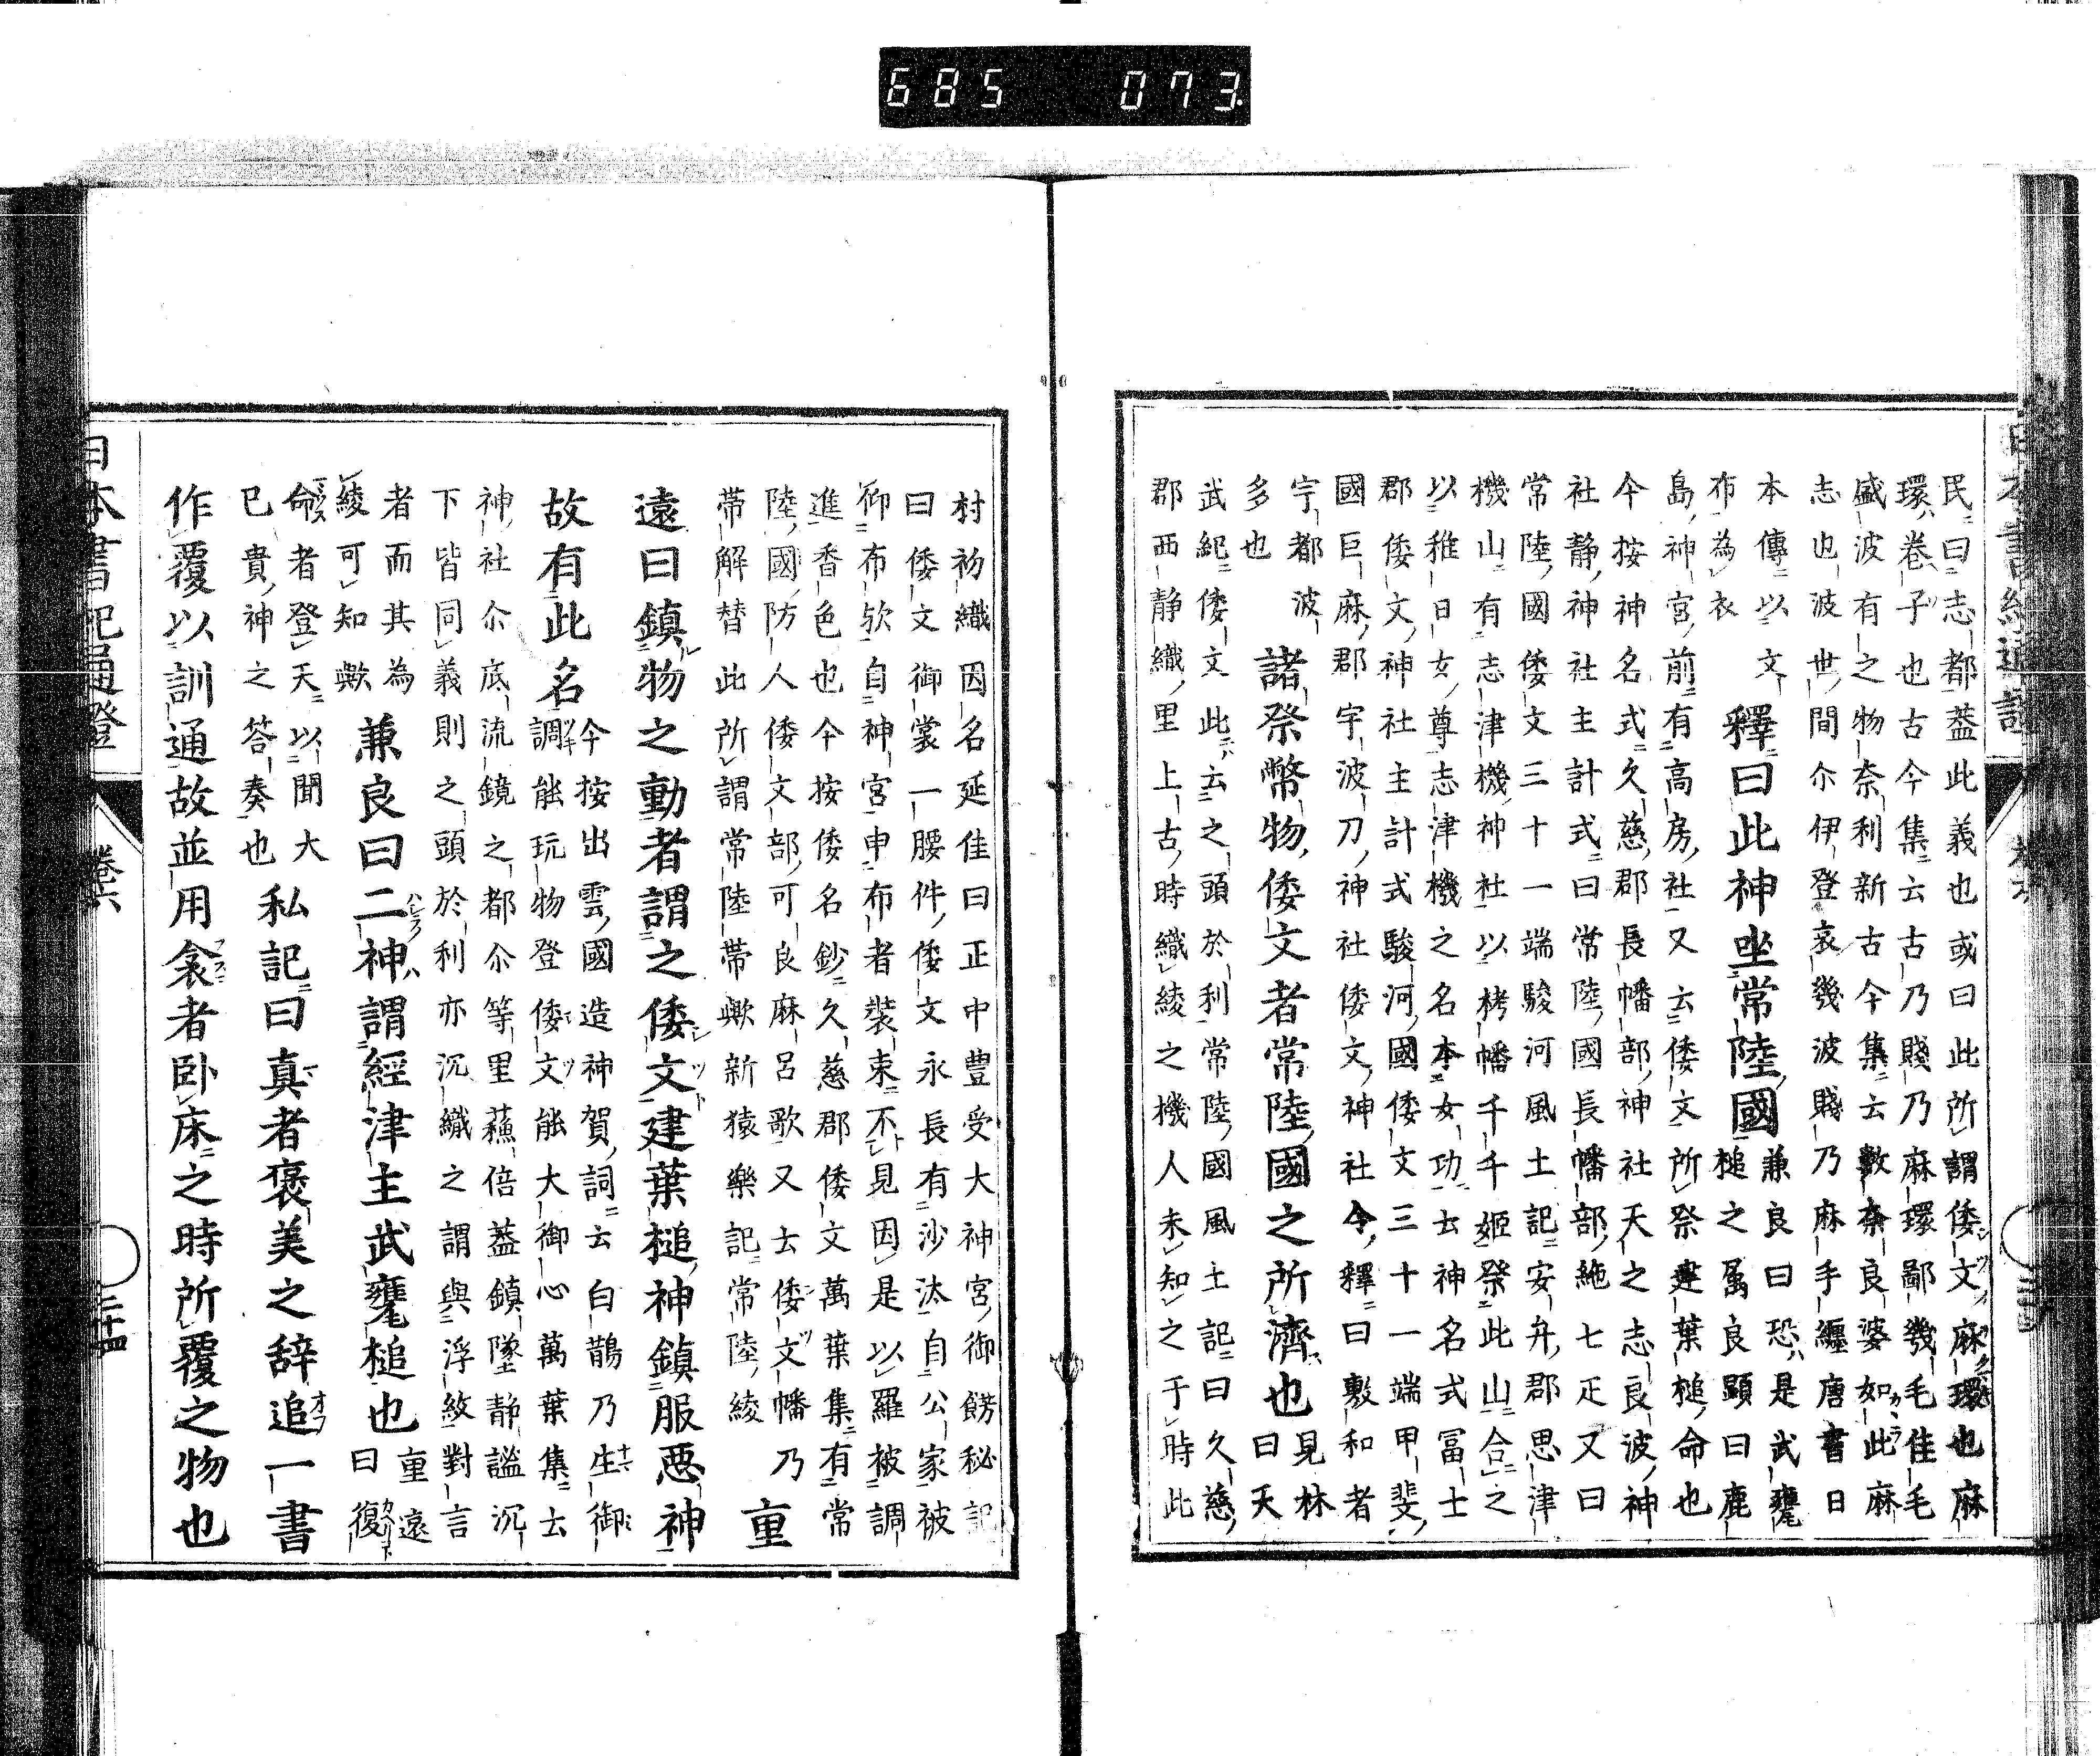 685 073
民曰志都蓋此義也或曰此所謂倭文麻環也麻
環卷子也古今集云古乃賤乃麻環鄙幾毛佳毛
盛波有之物奈利新古今集云數奈良婆如此麻
志也波世間尒伊登哀幾波賤乃麻手纏唐書日
本傳以文
布為衣
釋曰此神坐常陸國
兼良曰恐是武甕
槌之属良顕曰鹿
島神宮前有高房社又云倭文所祭建葉槌命也
今按神名式久慈郡長幡部神社天之志良波神
社静神社主計式曰常陸國長幡部絁七疋又曰
常陸國倭文三十一端駿河風土記安弁郡思津
機山有志津機神社以栲幡千千姬祭此山合之
以稚日女尊志津機之名本女功士神名式冨士
郡倭文神社主計式駿河國倭文三十一端甲斐
國巨麻郡宇波刀神社倭文神社令釋曰敷和者
宇都波
多也
諸祭幣物倭文者常陸國之所濟也
見林
曰天
武紀倭文此云之頭於利常陸國風土記曰久慈
郡西静織里上古時織綾之機人未知之于時此
村初織因名延佳曰正中豊受大神宮御餝秘記
曰倭文御裳一腰件倭文永長有沙汰自公家被
仰布欤自神宮申布者裝束不見因是以羅被調
進香色也今按倭名鈔久慈郡倭文萬葉集有常
陸國防人倭文部可良麻呂歌又云倭文幡乃
帯解替此所謂常陸帯歟新猿樂記常陸綾
重
遠曰鎮物之動者謂之倭文建葉槌神鎮服惡神
故有此名
今按出雲國造神賀詞云白鵲乃生御
調能玩物登倭文能大御心萬葉集云
神社尒底流鏡之都尒等里蘓倍蓋鎮墜静謐沉
下皆同義則之頭於利亦沉織之謂與浮紋對言
者而其為
綾可知歟
兼良曰二神謂經津主武甕槌也
重遠
曰復
命者登天以聞大
已貴神之答奏也
私記曰真者褒美之辞追一書
作覆以訓通故並用衾者卧床之時所覆之物也
日本書紀通證
卷六
三十四